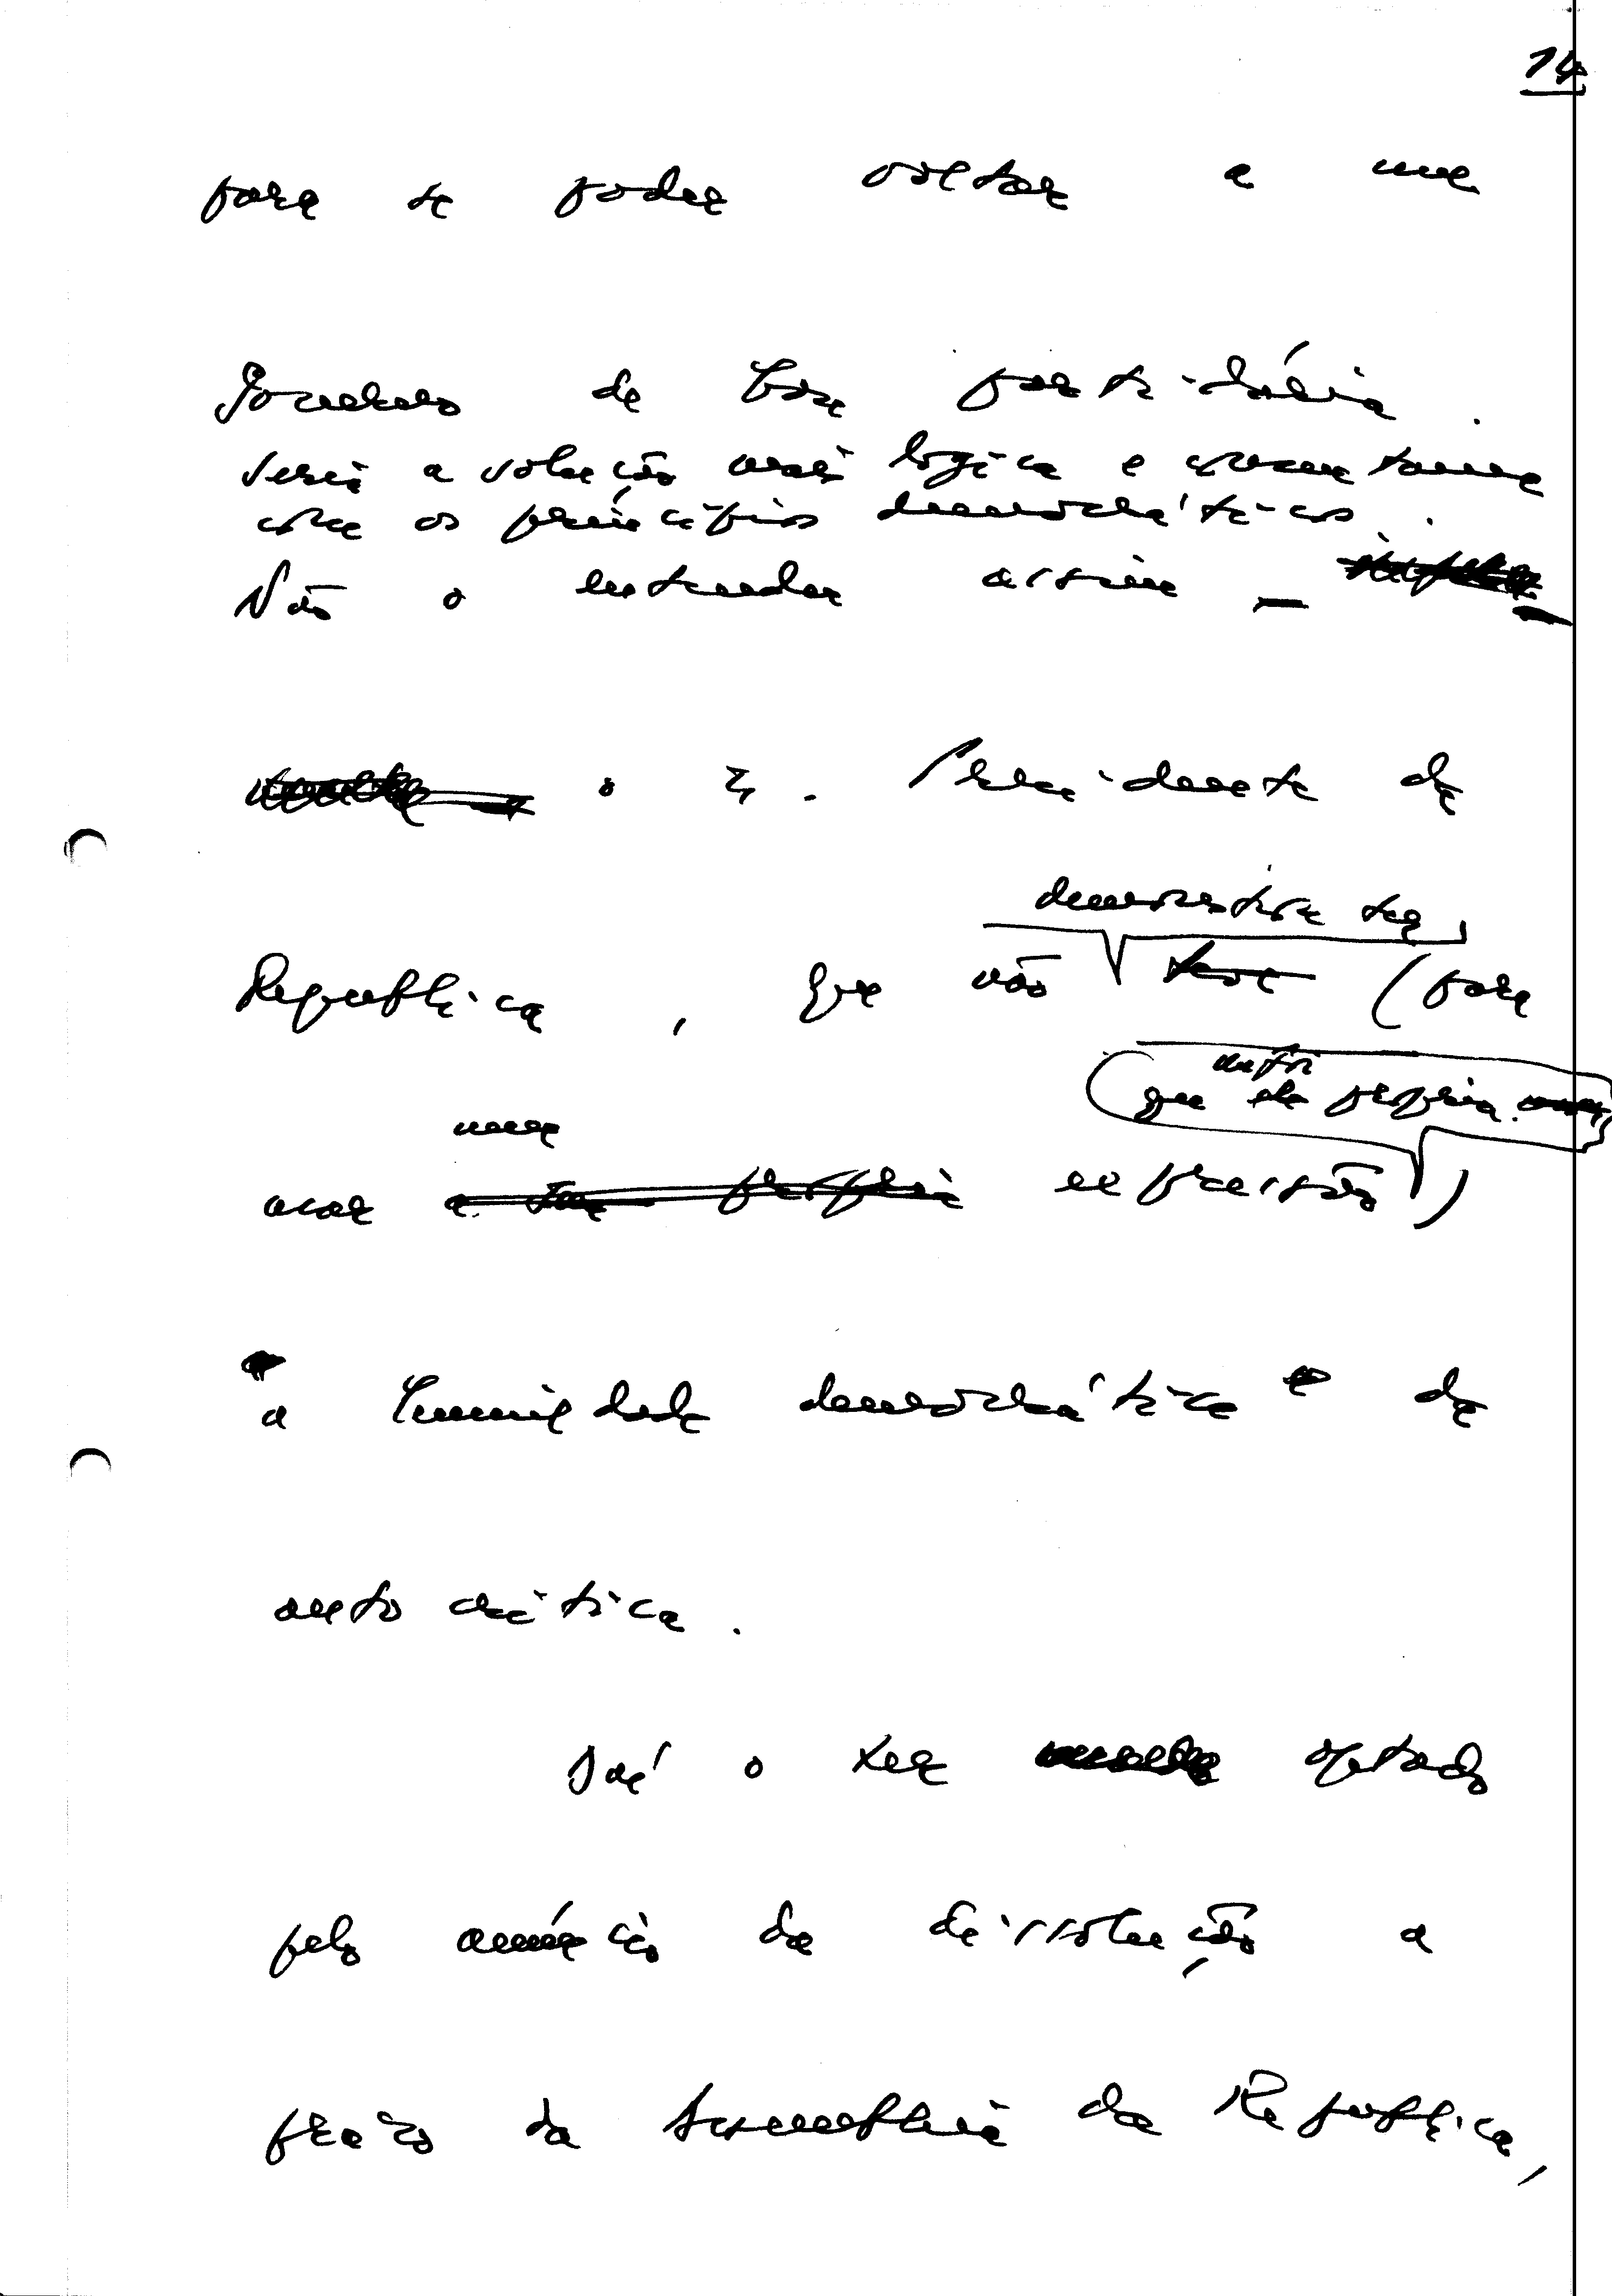 14
para se poder voltar a um
Governo de base partidária.
Seria a solução mais lógica e consentanea
com os princípios democráticos.
Não o entendeu assim —
o Sr. Presidente da
demonstrou ter
Republica, que não teve (para
que ele próprio
uma
usar a sua própria expressão)
a humildade democrática e da
autocrítica.
Daí o ter optado
pelo anúncio da dissolução a
prazo da Assembleia da Republica,